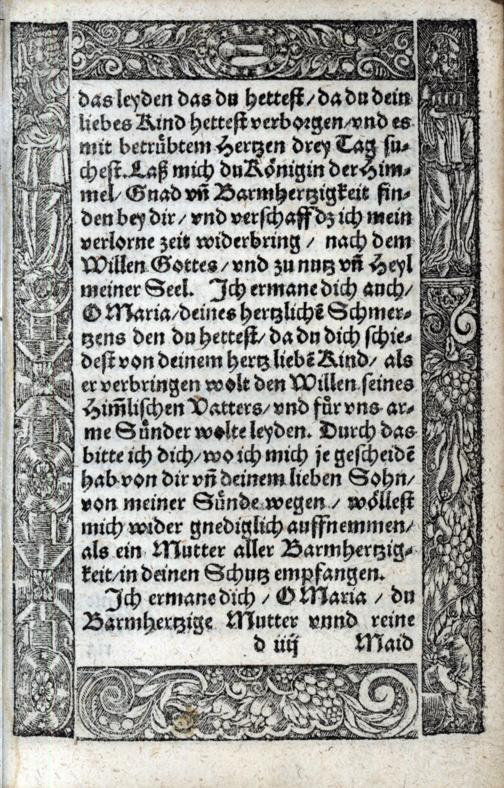 das leyden das du hettest/ da du dein
liebes Kind hettest verborgen/ vnd es
mit betrůbtem Hertzen drey Tag su⸗
chest. Laß mich du Königin der Him⸗
mel/ Gnad vñ Barmhertzigkeit fin⸗
den bey dir/ vnd verschaff dz ich mein
verlorne zeit widerbring / nach dem
Willen Gottes/ vnd zu nutz vñ Heyl
meiner Seel. Ich ermane dich auch/
O Maria/ deines hertzlichē Schmer⸗
tzens den du hettest/ da du dich schie⸗
dest von deinem hertz liebē Kind/ als
er verbringen wolt den Willen seines
Him̃lischen Vatters/ vnd für vns ar⸗
me Sünder wolte leyden. Durch das
bitte ich dich/ wo ich mich je gescheidē
hab von dir vñ deinem lieben Sohn/
von meiner Sünde wegen / wöllest
mich wider gnediglich auffnemmen/
als ein Mutter aller Barmhertzig⸗
keit/ in deinen Schutz empfangen.
Ich ermane dich / O Maria / du
Barmhertzige Mutter vnnd reine
d iiij Maid